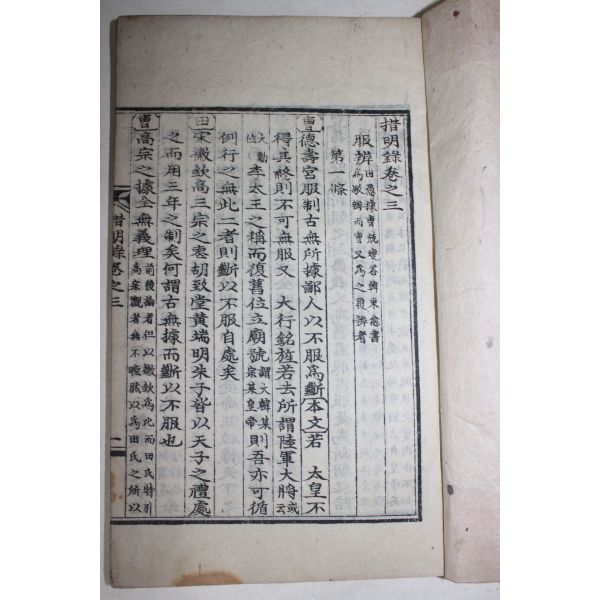 措明錄卷之三
服辨田愚據曹兢燮答韓東愈書爲駁辨而曹又爲之疑辨者
第一條
曹德壽宮服制古無所據鄙人以不服爲斷本文若 太皇不
得其終則不可無服又 大行銘旌若去所謂陸軍大將或云
大勳李太王之稱而復舊位立廟號謂大韓某宗某皇帝則吾亦可循
例行之無此二者則斷以不服自處矣
田宋徽欽高三宗之喪胡致堂黃端明朱子皆以天子之禮處
之而用三年之制矣何謂古無據而斷以不服也
曹高宗之據全無義理前後論者但以徽欽爲比而田氏特引高宗觀者無不唾駭以爲田氏之所以
措明錄卷之三
二